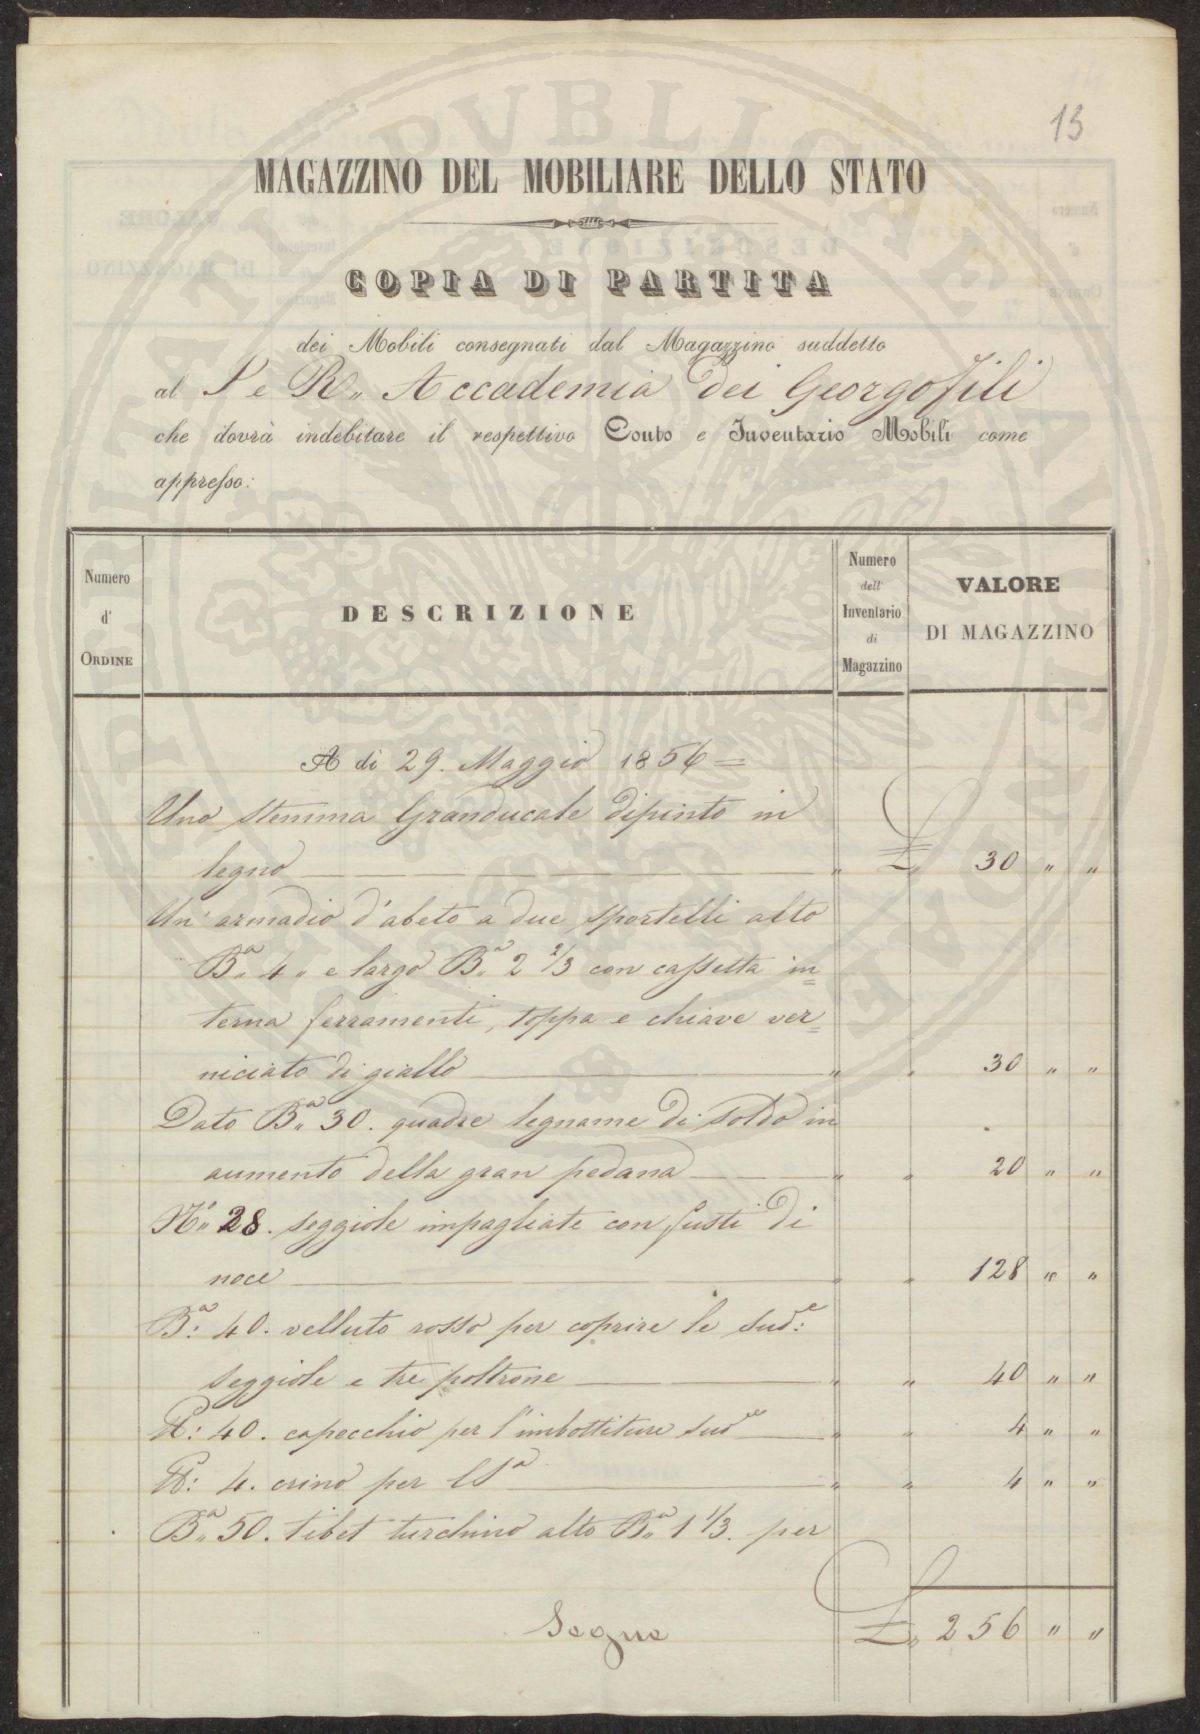 13
MAGAZZINO DEL MOBILIARE DELLO STATO
COPIA DI PARTITA
dei Mobili consegnati dal Magazzino suddetto
al I e R.. Accademia dei Georgofili
che dovrà indebitare il respettivo Conto e Inventario Mobili come
appresso:
Numero d' ORDINE
DESCRIZIONE
Numero dell' Inventario di Magazzino
VALORE DI MAGAZZINO
A di 29. Maggio 1856 =
Uno stemma Granducale dipinto in
legno " £ 30 " "
Un' armadio d'abeto a due sportelli alto
B.a 4 " e largo B.a 2 2/3 con cassetta in=
terna ferramenti, toppa e chiave ver=
niciato di giallo " " 30 " "
Dato B.a 30. quadre legname di soldo in
aumento della gran pedana " " 20 " "
N.o 28. seggiole impagliate con fusti di
noce " " 128 " "
B.a 40. velluto rosso per coprire le sud.e
seggiole e tre poltrone " " 40 " "
tt: 40. capecchio per l'imbottiture sud.ee " " 4 " "
tt: 4. crino per " " 4 " "
B.a 50. tibet turchino alto B.a 1 1/3. per
Segue £ 256 " "